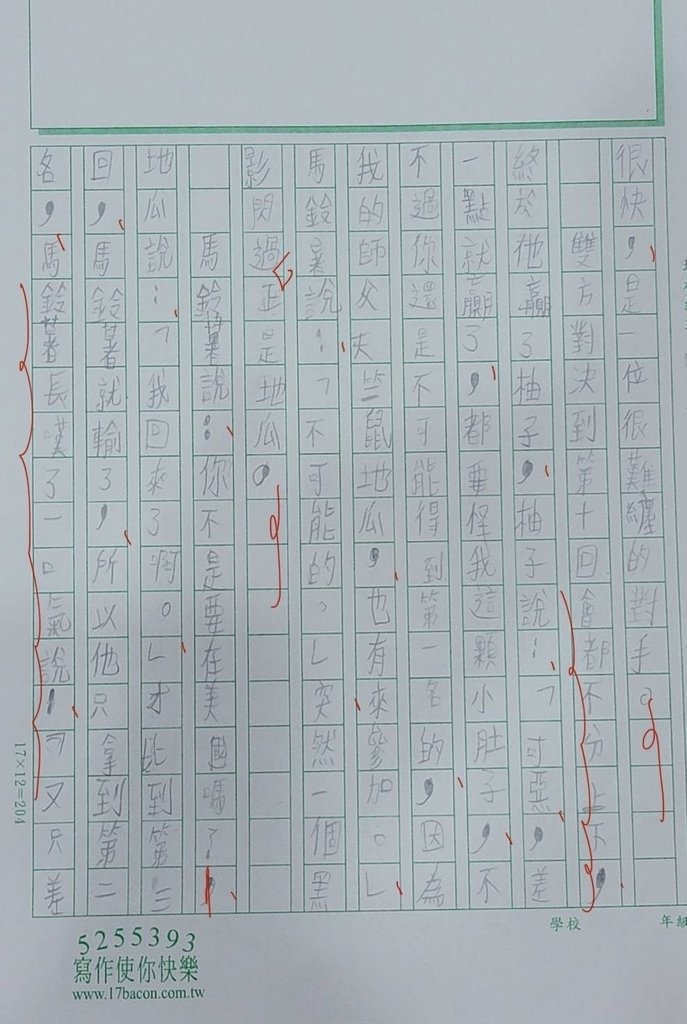 很快，是一位很難纏的對手。
雙方對決到第十回會都不分上下，
終於他贏了柚子，柚子說：「可惡，差
一點就贏了，都要怪我這顆小肚子，不
不過你還是不可能得到第一名的，因為
我的師父天竺鼠地瓜，也有來參加。」
馬鈴薯說：「不可能的。」突然一個黑
影閃過正是地瓜，
馬鈴薯說：你不是要在美國嗎？
地瓜說：「我回來了啊。」才比到第三
回，馬鈴薯就輸了，所以他只拿到第二
名，馬鈴薯長嘆了一口氣說：「又只差
17×12=204
學校
年級
5255393
寫作使你快樂
www.17bacon.com.tw